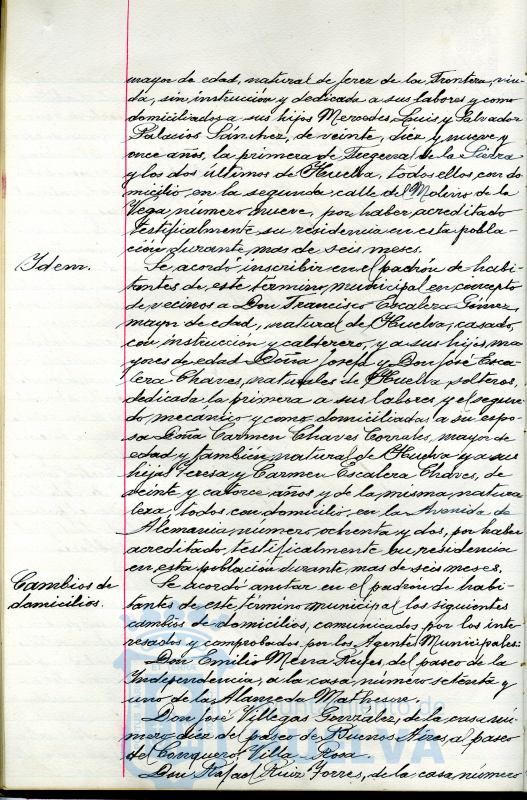 mayor de edad, natural de Jerez de la Frontera, viu-
da, sin instrucción y dedicada a sus labores y como
domiciliados a sus hijos Mercedes, Luis y Salvador
Palacios Sánchez, de veinte, diez y nueve y
once años, la primera de Higuera de la Sierra
y los dos últimos de Huelva, todos ellos, con do
micilio en la segunda calle del Molino de la
Vega número nueve, por haber acreditado
testificalmente su residencia en esta pobla-
ción durante mas de seis meses.
Idem.
Se acordó inscribir en el padrón de habi-
tantes de este término municipal en concepto
de vecinos a Don Francisco Escalera Gómez,
mayor de edad, natural de Huelva, casado,
con instrucción y calderero, y a sus hijos ma
yores de edad Doña Josefa y Don José Esca-
lera Chaves, naturales de Huelva, solteros,
dedicada la primera a sus labores y el segun-
do mecánico y como domiciliadas a su espo-
sa Doña Carmen Chaves Corrales, mayor de
edad y también natural de Huelva y a sus
hijas Teresa y Carmen Escalera Chaves, de
veinte y catorce años y de la misma natura
leza, todos con domicilio en la Avenida de
Alemania, número ochenta y dos, por haber
acreditado testificalmente su residencia
en esta población durante mas de seis meses.
Cambios de
domicilios.
Se acordó anotar en el padrón de habi-
tantes de este término municipal los siguientes
cambios de domicilios, comunicados por los inte
resados y comprobados por los Agentes Municipales:
Don Emilio Mena Reyes, del paseo de la
Independencia, a la casa número setenta y
uno de la Alameda Mathure.
Don José Villegas Gonzalez, de la casa nú-
mero diez del paseo de Buenos Aires, al paseo
del Conquero, Villa Rosa.
Don Rafael Ruiz Torres, de la casa número
Ayuntamiento de
HUELVA